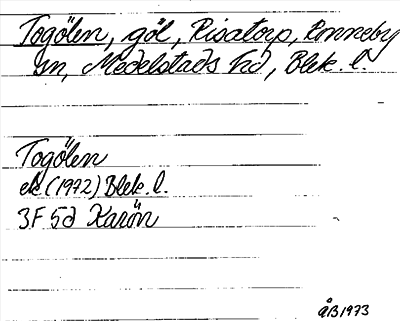 Togölen, göl, Risatorp, Ronneby
sn, Medelstads hd, Blek. l.
Togölen
ek (1972) Blek. l.
3F 5d Karön
ÅB 1973